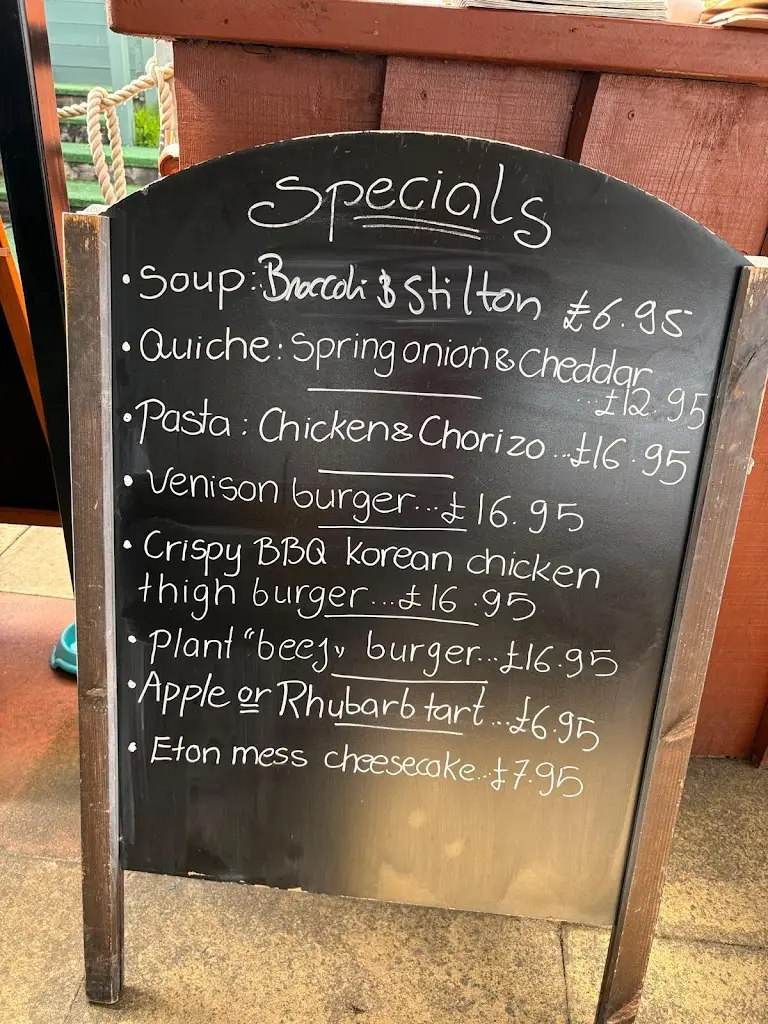 Specials
• Soup: Broccoli & Stilton £6.95
• Quiche: Spring onion & Cheddar
...£12.95
• Pasta: Chicken & Chorizo...£16.95
• Venison burger...£16.95
• Crispy BBQ korean chicken
thigh burger...£16.95
• Plant "beef" burger...£16.95
• Apple or Rhubarb tart...£6.95
• Eton mess cheesecake...£7.95